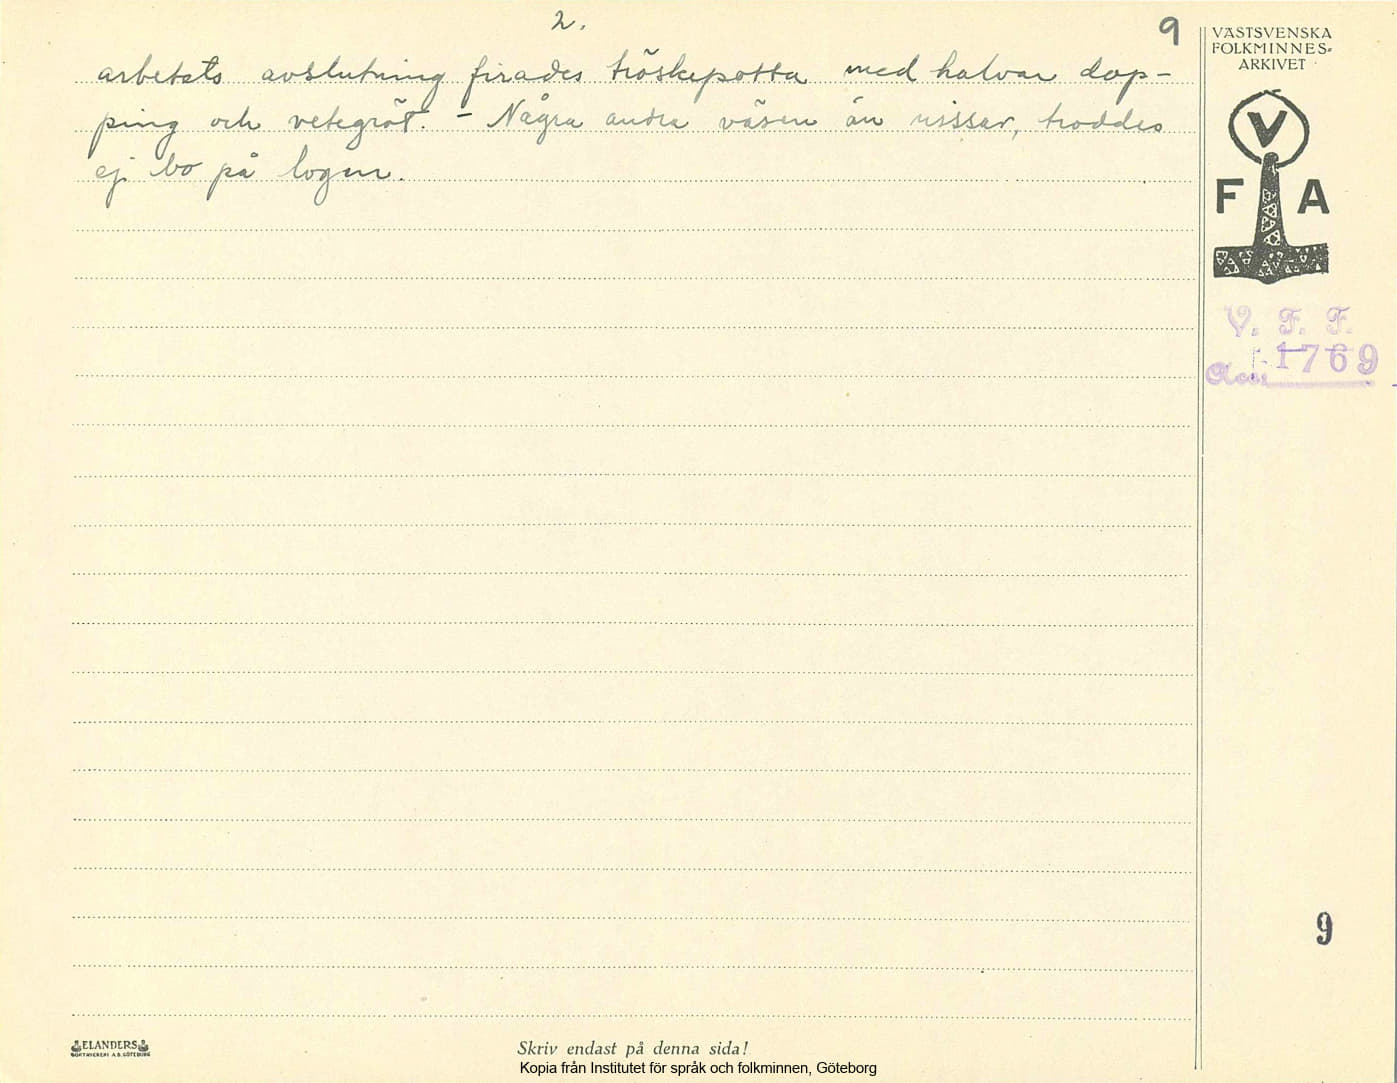 2.
9
VÄSTSVENSKA
FOLKMINNES-
ARKIVET
arbetets avslutning firades tröskepotta med halvar dop-
ping och vetegröt. - Några andra väsen än nissar, troddes
ej bo på logen.
V
F A
V. F. F.
Acc. 1769
9
ELANDERS
BOKTRYCKERI A.B. GÖTEBORG
Skriv endast på denna sida!
Kopia från Institutet för språk och folkminnen, Göteborg